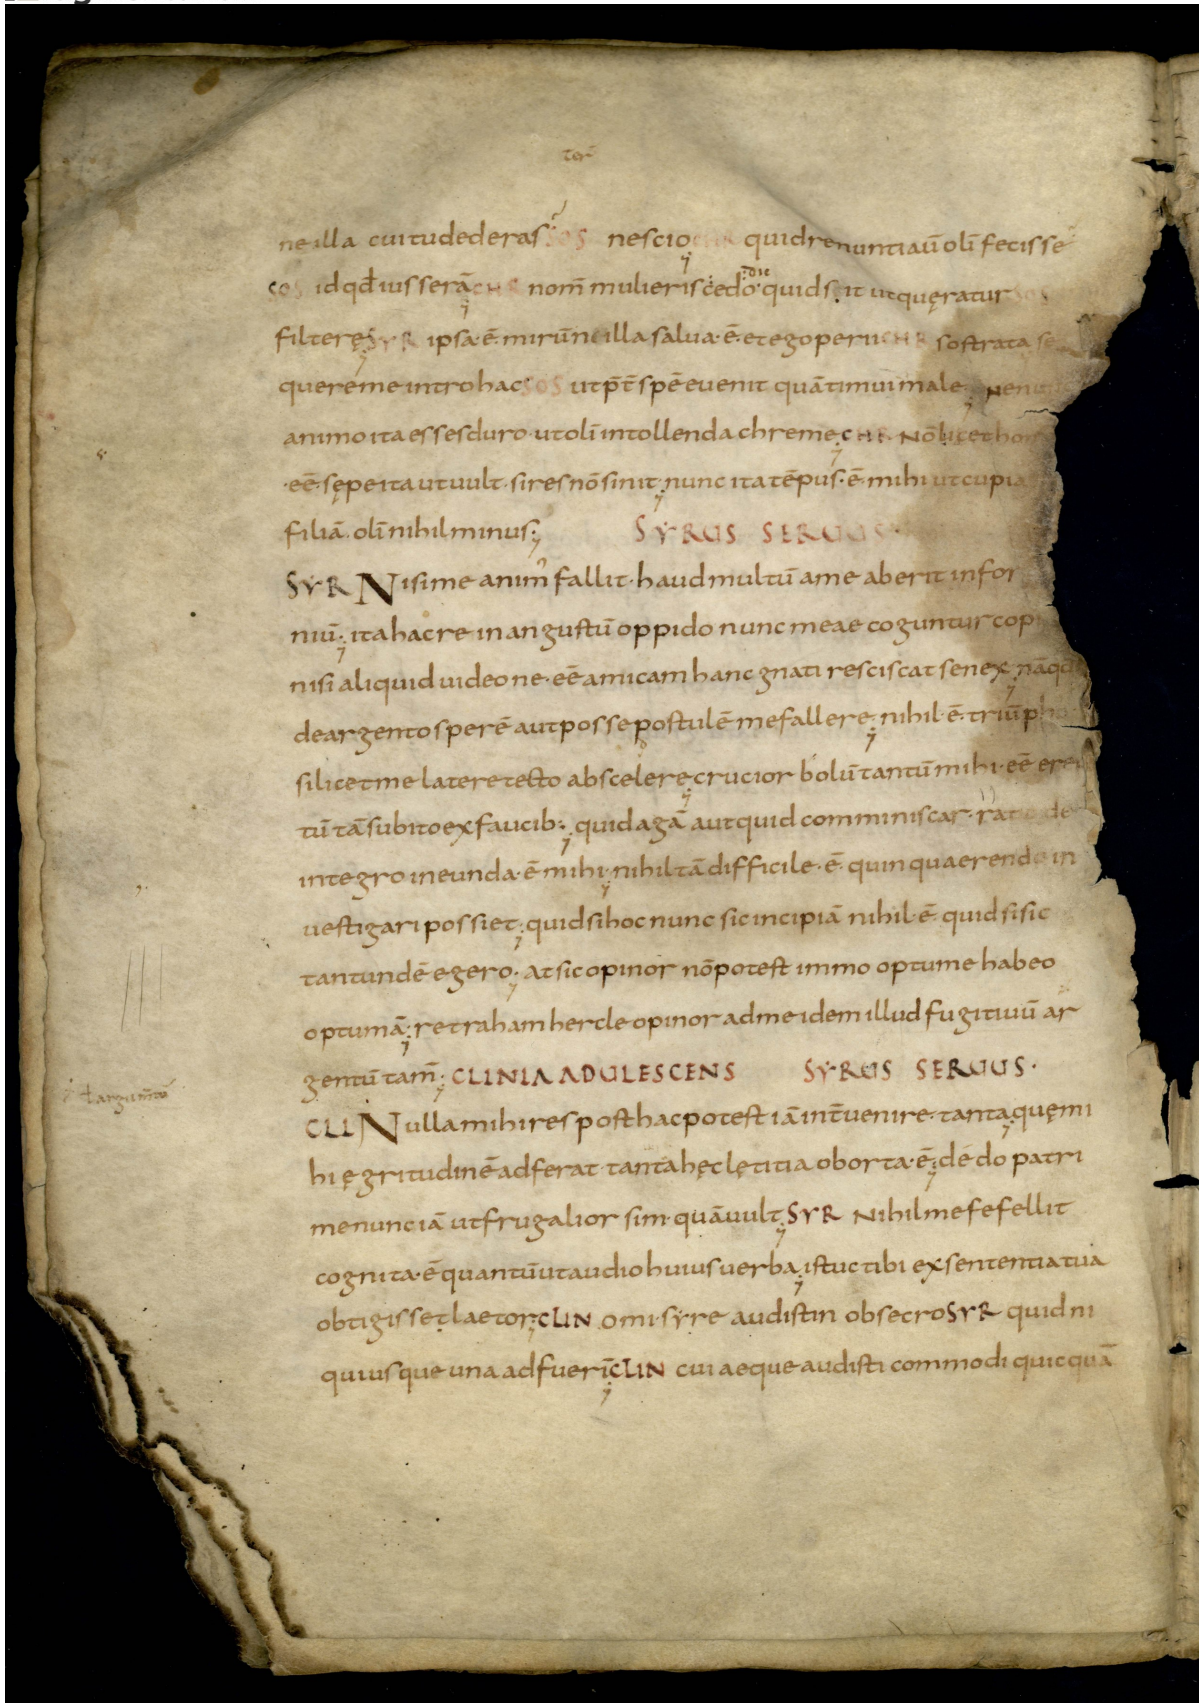 ne illa cui tu dederas SOS nescio CHR quid renuntiaū olī fecisse
SOS id qd̄ iusserā CHR nom̄ mulieris cedo quid sit ut quęratur SOS
filterę SYR ipsa ē mirū ni illa salua ē et ego perii CHR sostrata se
quereme intro hac SOS ut p̄t̄ spē euenit quā timui male
animo ita esses duro ut olī in tollenda chreme CHR Nō licet hom
eē sępe ita ut uult si res nō sinit nunc ita tēpus ē mihi ut cupia
filiā olī nihil minus SYRUS SERUUS
SYR Nisi me anim̄ fallit haud multū a me aberit infor
niū ita hac re in angustū oppido nunc meae coguntur cop
nisi aliquid uideo ne eē amicam hanc gnati resciscat senex nā qd
de argento sperē aut posse postulē me fallere nihil ē triūpho
si licet me latere tecto abscelere crucior bolū tantū mihi eē ere
tū tā subito ex faucib; quid agā aut quid comminiscar ratio de
integro ineunda ē mihi nihil tā difficile ē quin quaerendo in
uestigari possiet quid si hoc nunc sic incipiā nihil ē quid si sic
tantundē egero at sic opinor nō potest immo optume habeo
optumā retraham hercle opinor ad me idem illud fugitiuū ar
gentū tam̄ CLINIA ADULESCENS SYRUS SERUUS
ł argum̄tū
CLI Nulla mihi res posthac potest iā int̄uenire tanta quę mi
hi ęgritudinē adferat tanta hęc lętitia oborta ē dedo patri
me nunc iā ut frugalior sim quā uult SYR Nihil me fefellit
cognita ē quantū ut audio huius uerba istuc tibi ex sententia tua
obtigisset laetor CLIN o mi syre audistin obsecro SYR quid ni
qui usque una adfuerī CLIN cui aeque audisti commodi quicquā